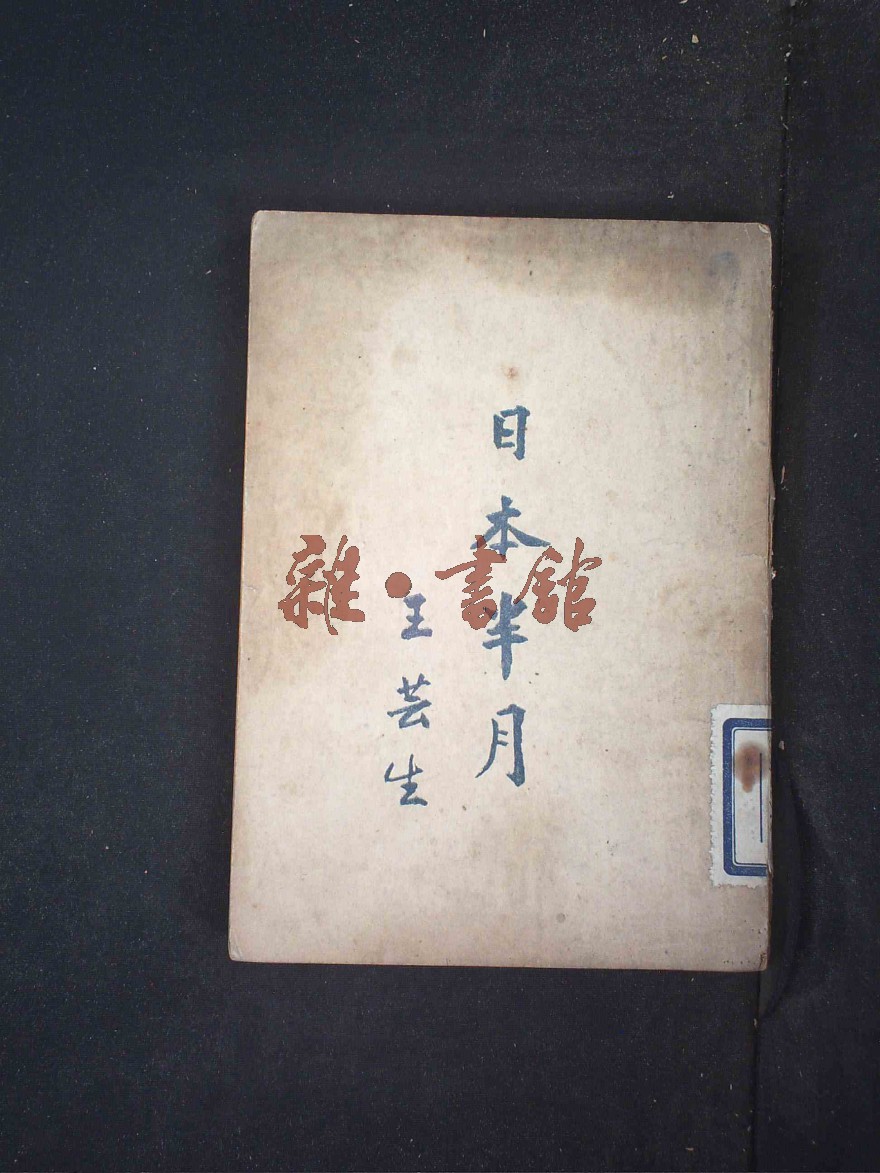 日本半月
王芸生
雜·書舘